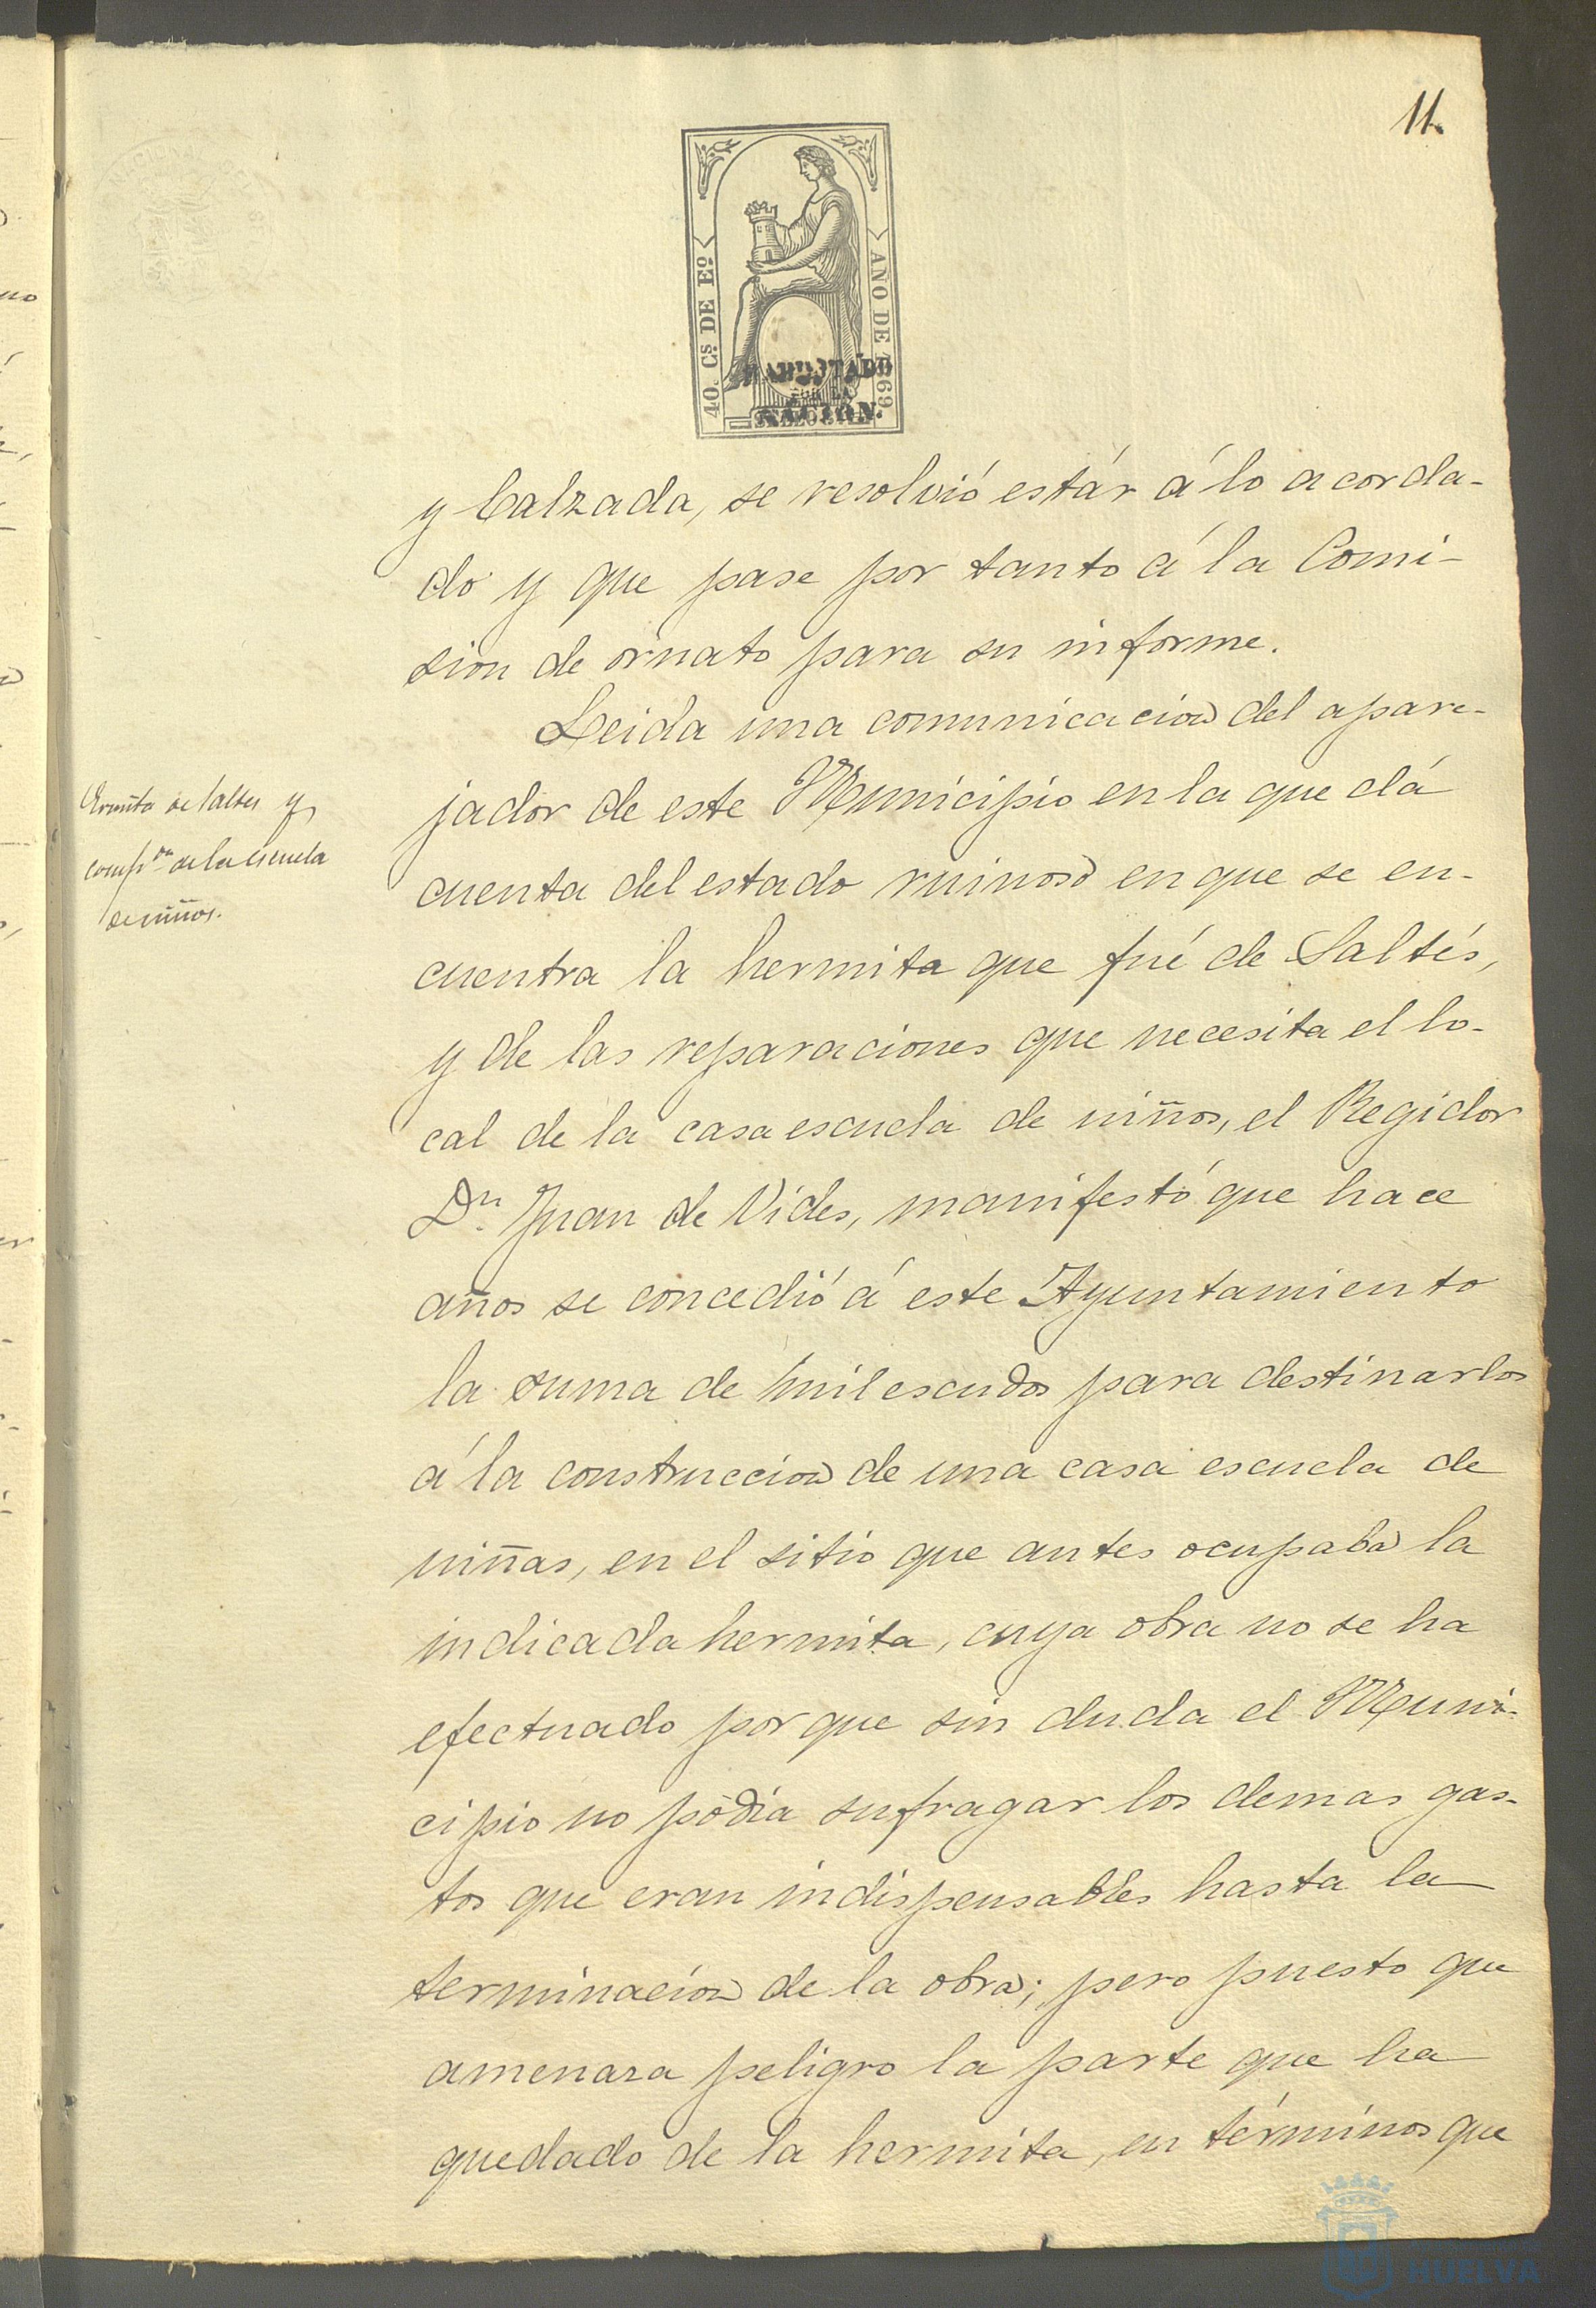 11.
40. Cs. DE Eo.
AÑO DE 1869
HABILITADO
POR LA
NACION.
y Calzada, se resolvió estár á lo acorda-
do y que pase por tanto á la Comi-
sion de ornato para su informe.
Ermita de Saltes y
comp.on de la escuela
de niños.
Leida una comunicacion del apare-
jador de este Municipio en la que dá
cuenta del estado ruinoso en que se en-
cuentra la hermita que fué de Saltés,
y de las reparaciones que necesita el lo-
cal de la casa escuela de niños, el Regidor
Dn. Juan de Vides, manifestó que hace
años se concedió á este Ayuntamiento
la suma de mil escudos para destinarlos
á la construccion de una casa escuela de
niñas, en el sitio que antes ocupaba la
indicada hermita, cuya obra no se ha
efectuado por que sin duda el Muni-
cipio no podia sufragar los demas gas-
tos que eran indispensables hasta la
terminacion de la obra; pero puesto que
amenaza peligro la parte que ha
quedado de la hermita, en términos que
HUELVA